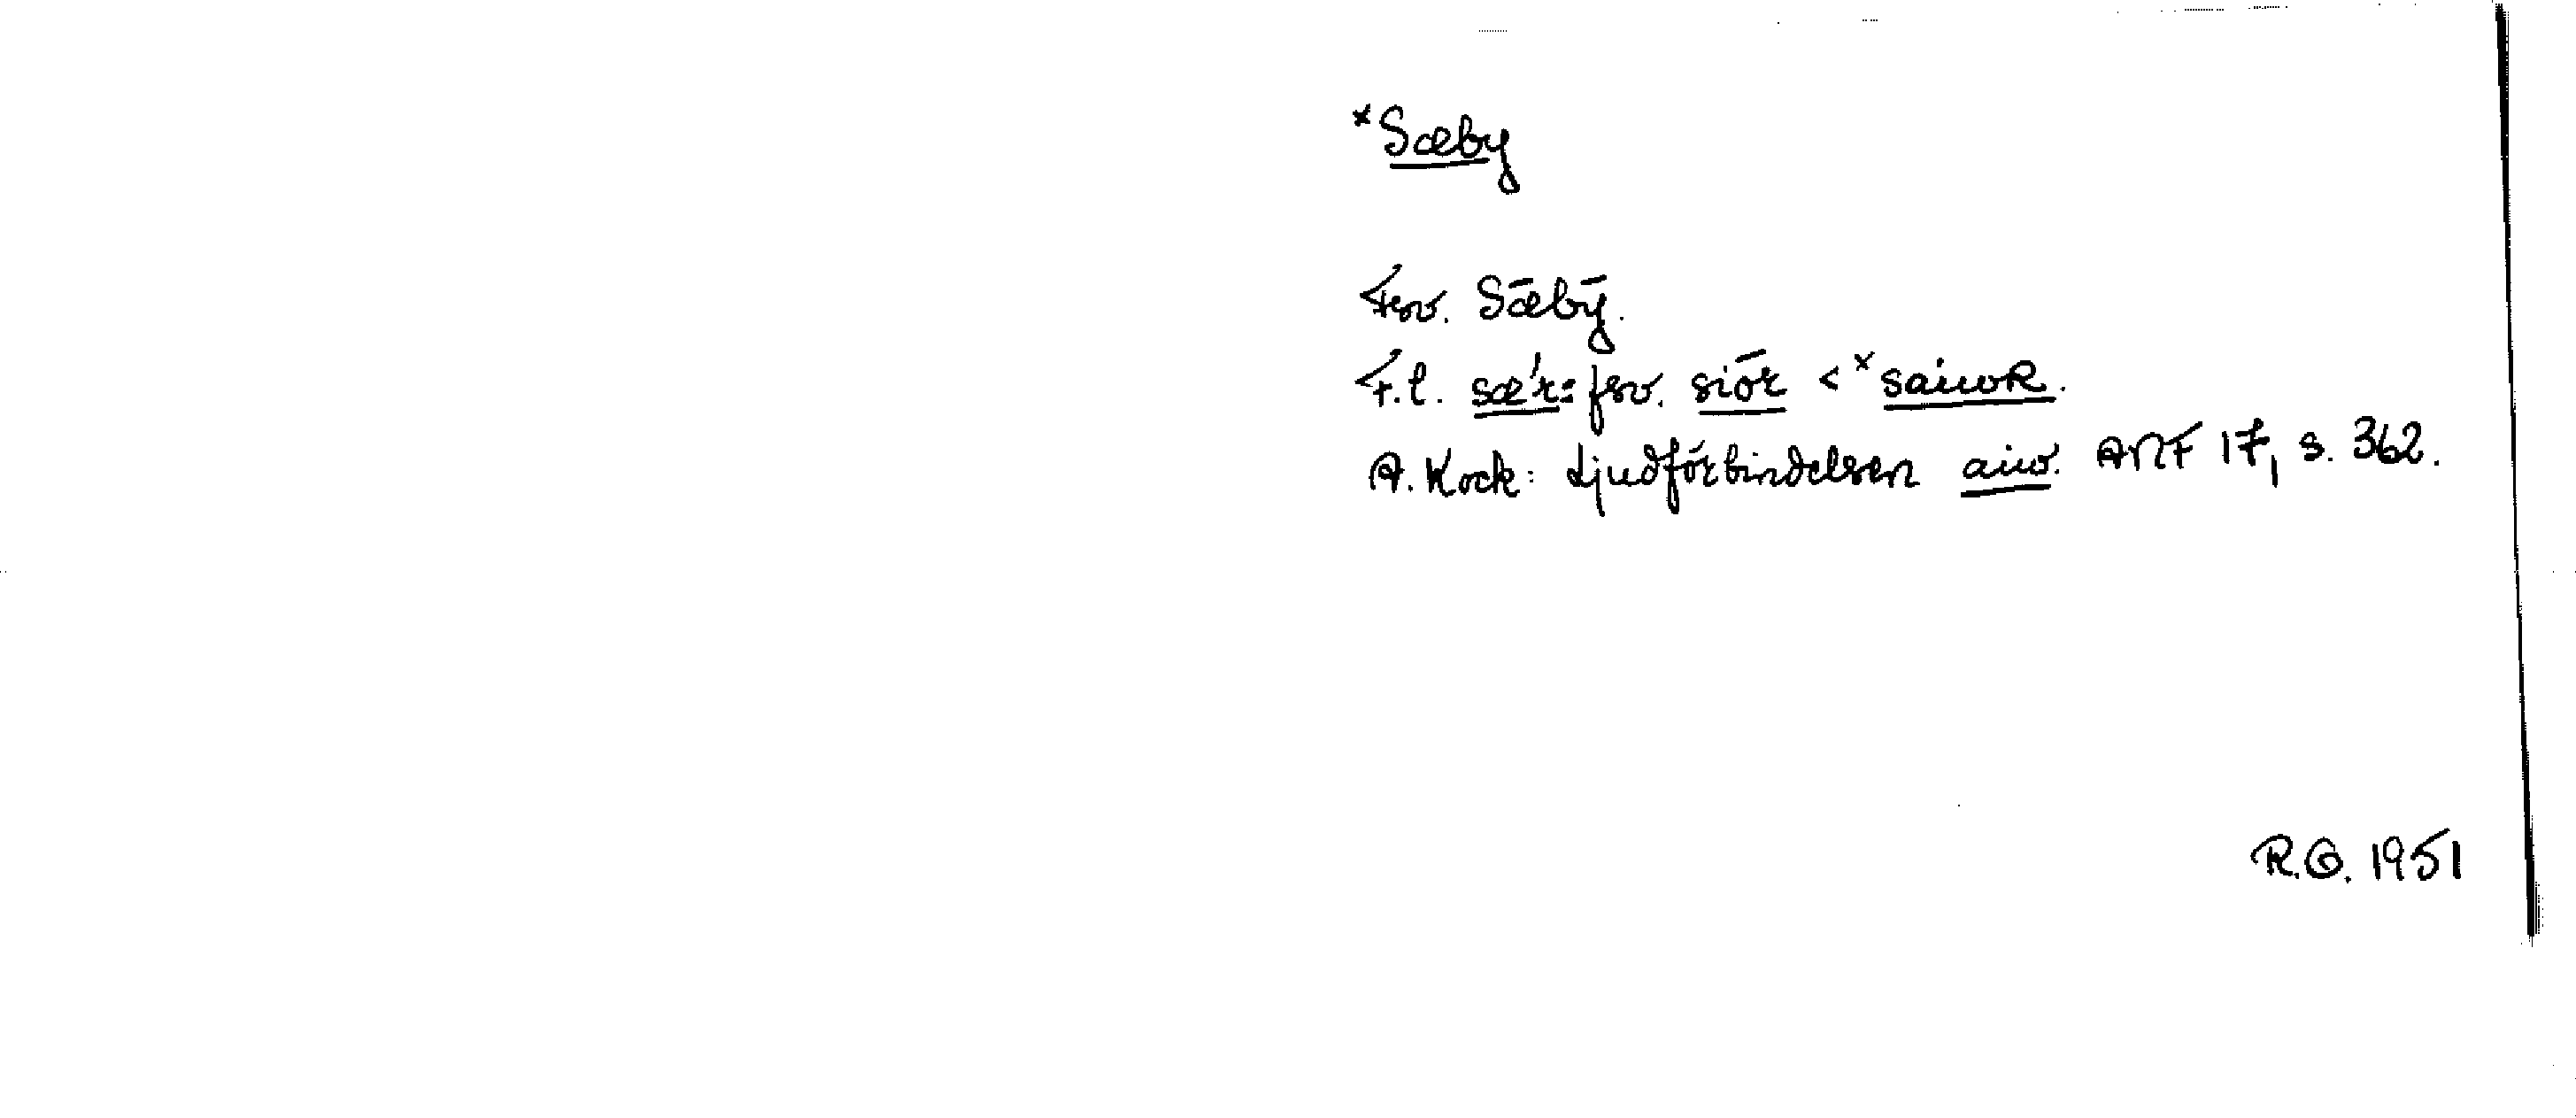 *Sæby
Fsv. Sǣbȳ.
F.l. sǽr = fsv. siōr < *saiwR.
A. Kock: Ljudförbindelsen aiw. ANF 17, s. 362.
R.G. 1951